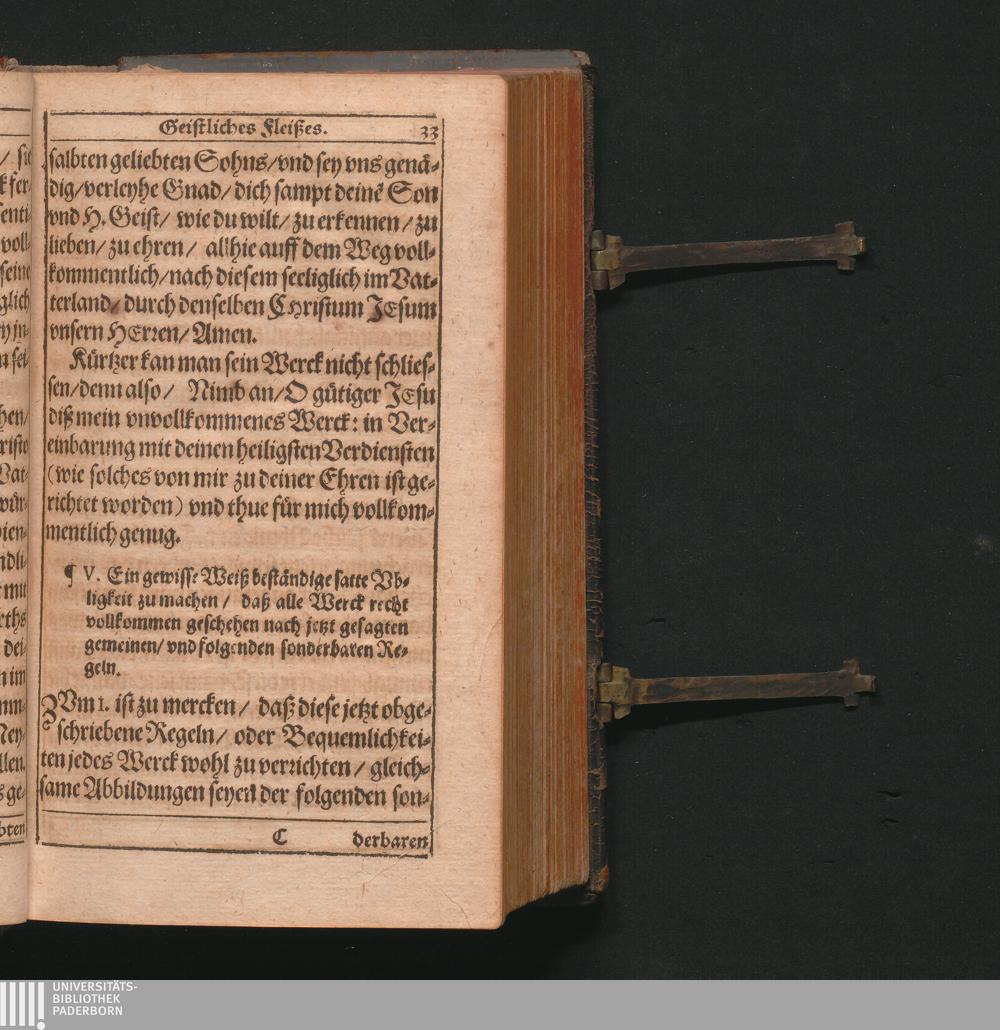 Geistliches Fleißes. 33
salbten geliebten Sohns/vnd sey vns genä-
dig/verleyhe Gnad/dich sampt deinē Son
vnd H. Geist/ wie du wilt/ zu erkennen/ zu
lieben/ zu ehren/ allhie auff dem Weg voll-
kommentlich/nach diesem seeliglich im Vat-
terland/ durch denselben Christum JEsum
vnsern HErren/ Amen.
Kürtzer kan man sein Werck nicht schlies-
sen/denn also/ Nimb an/O gütiger JEsu
diß mein vnvollkommenes Werck: in Ver-
einbarung mit deinen heiligsten Verdiensten
(wie solches von mir zu deiner Ehren ist ge-
richtet worden) vnd thue für mich vollkom-
mentlich genug.
¶ V. Ein gewisse Weiß beständige satte Vb-
ligkeit zu machen/ daß alle Werck recht
vollkommen geschehen nach jetzt gesagten
gemeinen/ vnd folgenden sonderbaren Re-
geln.
ZVm 1. ist zu mercken/ daß diese jetzt obge-
schriebene Regeln/ oder Bequemlichkei-
ten jedes Werck wohl zu verrichten/ gleich-
same Abbildungen seyen der folgenden son-
C derbaren
UNIVERSITÄTS-
BIBLIOTHEK
PADERBORN